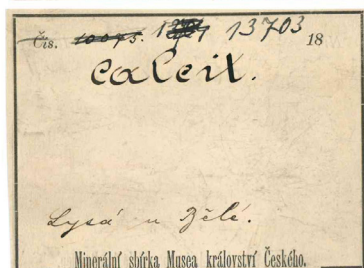 Čís. 10075. 13703 18
calcit.
Lysá u Bělé.
Minerální sbírka Musea království Českého.